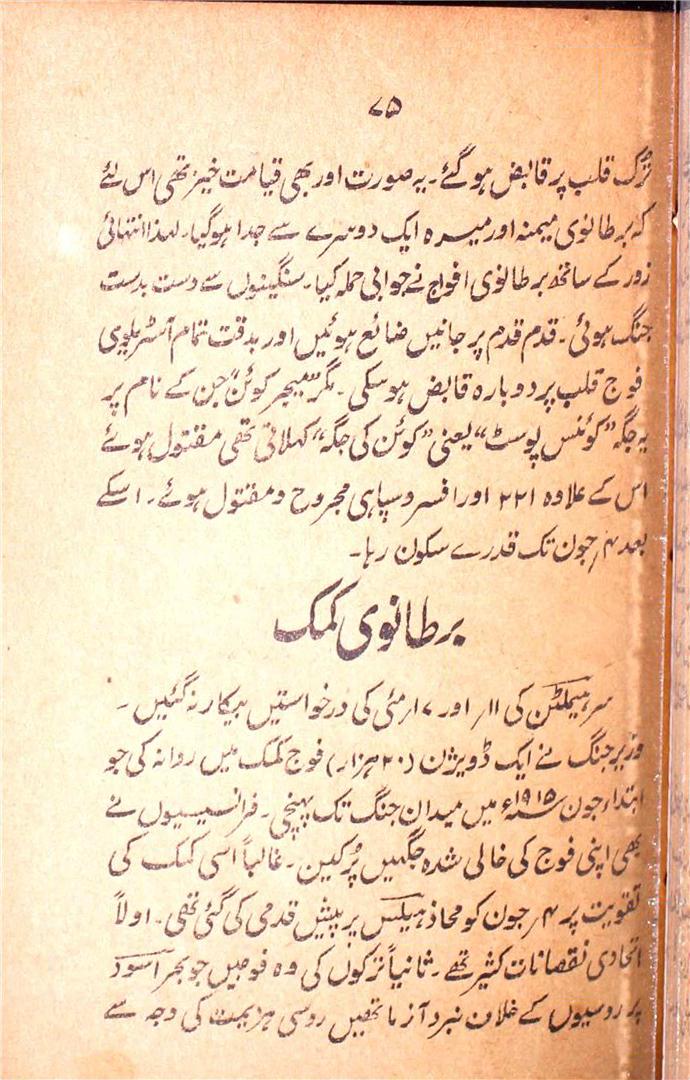 ۷۵
ترک قلب پر قابض ہو گئے۔ یہ صورت اور بھی قیامت خیز تھی اس لئے
کہ برطانوی میمنہ اور میسرہ ایک دوسرے سے جدا ہوگیا۔ لہذا انتہائی
زور کے ساتھ برطانوی افواج نے جوابی حملہ کیا۔ سنگینوں سے دست بدست
جنگ ہوئی۔ قدم قدم پر جانیں ضائع ہوئیں اور بدقت تمام آسٹریلوی
فوج قلب پر دوبارہ قابض ہوسکی۔ مگر "میجر کوئن" جن کے نام پر
یہ جگہ "کوئنس پوسٹ" یعنی "کوئن کی جگہ" کہلاتی تھی مقتول ہوئے
اس کے علاوہ ۲۲۱ اور افسر و سپاہی مجروح و مقتول ہوئے۔ اسکے
بعد ۴؍ جون تک قدرے سکون رہا۔
برطانوی کمک
سر ہیملٹن کی ۱۱؍ اور ۱۷؍ مئی کی درخواستیں بیکار نہ گئیں۔
وزیر جنگ نے ایک ڈویژن (۲۰ ہزار) فوج کمک میں روانہ کی جو
ابتداء جون ۱۹۱۵ء میں میدان جنگ تک پہنچی۔ فرانسیسیوں نے
بھی اپنی فوج کی خالی شدہ جگہیں پُر کین۔ غالباً اسی کمک کی
تقویت پر ۴؍ جون کو محاذ ہیلس پر پیش قدمی کی گئی تھی۔ اولاً
اتحادی نقصانات کثیر تھے۔ ثانیاً ترکوں کی وہ فوجیں جو بحر اسود
پر روسیوں کے خلاف نبرد آزما تھیں روسی ہزیمت کی وجہ سے